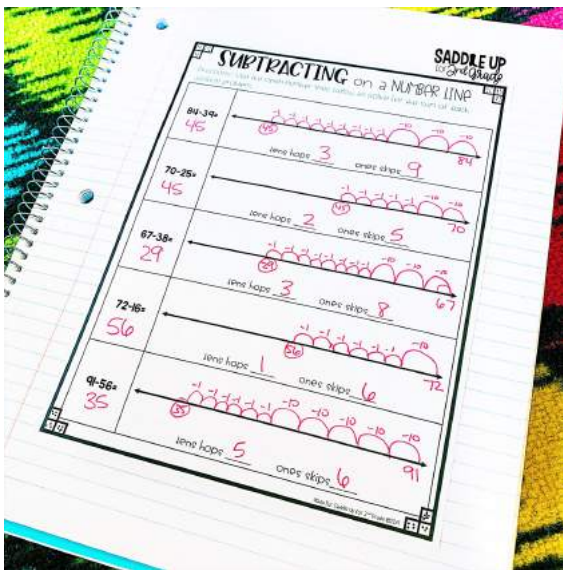 SADDLE UP
for 2nd Grade
SUBTRACTING on a NUMBER LINE
84-39=
45
-1 -1 -1 -1 -1 -1 -1 -1 -1 -10 -10 -10
45
84
tens hops 3 ones skips 9
70-25=
45
-1 -1 -1 -1 -1 -10 -10
45
70
tens hops 2 ones skips 5
67-38=
29
-1 -1 -1 -1 -1 -1 -1 -1 -10 -10 -10
29
67
tens hops 3 ones skips 8
72-16=
56
-1 -1 -1 -1 -1 -1 -10
56
72
tens hops 1 ones skips 6
91-56=
35
-1 -1 -1 -1 -1 -1 -10 -10 -10 -10 -10
35
91
tens hops 5 ones skips 6